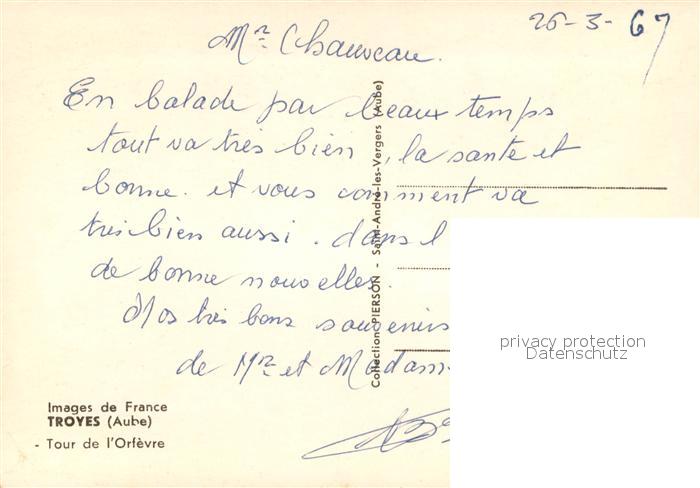 26-3-67
Mr Chauveau.
En balade par beaux temps
tout va très bien, la santé et
bonne. et vous comment va
très bien aussi. dans l
de bonne nouvelles.
Nos très bons souvenirs
de Mr et Madam
Collection PIERSON - Saint-André-les-Vergers (Aube)
privacy protection
Datenschutz
Images de France
TROYES (Aube)
- Tour de l'Orfèvre